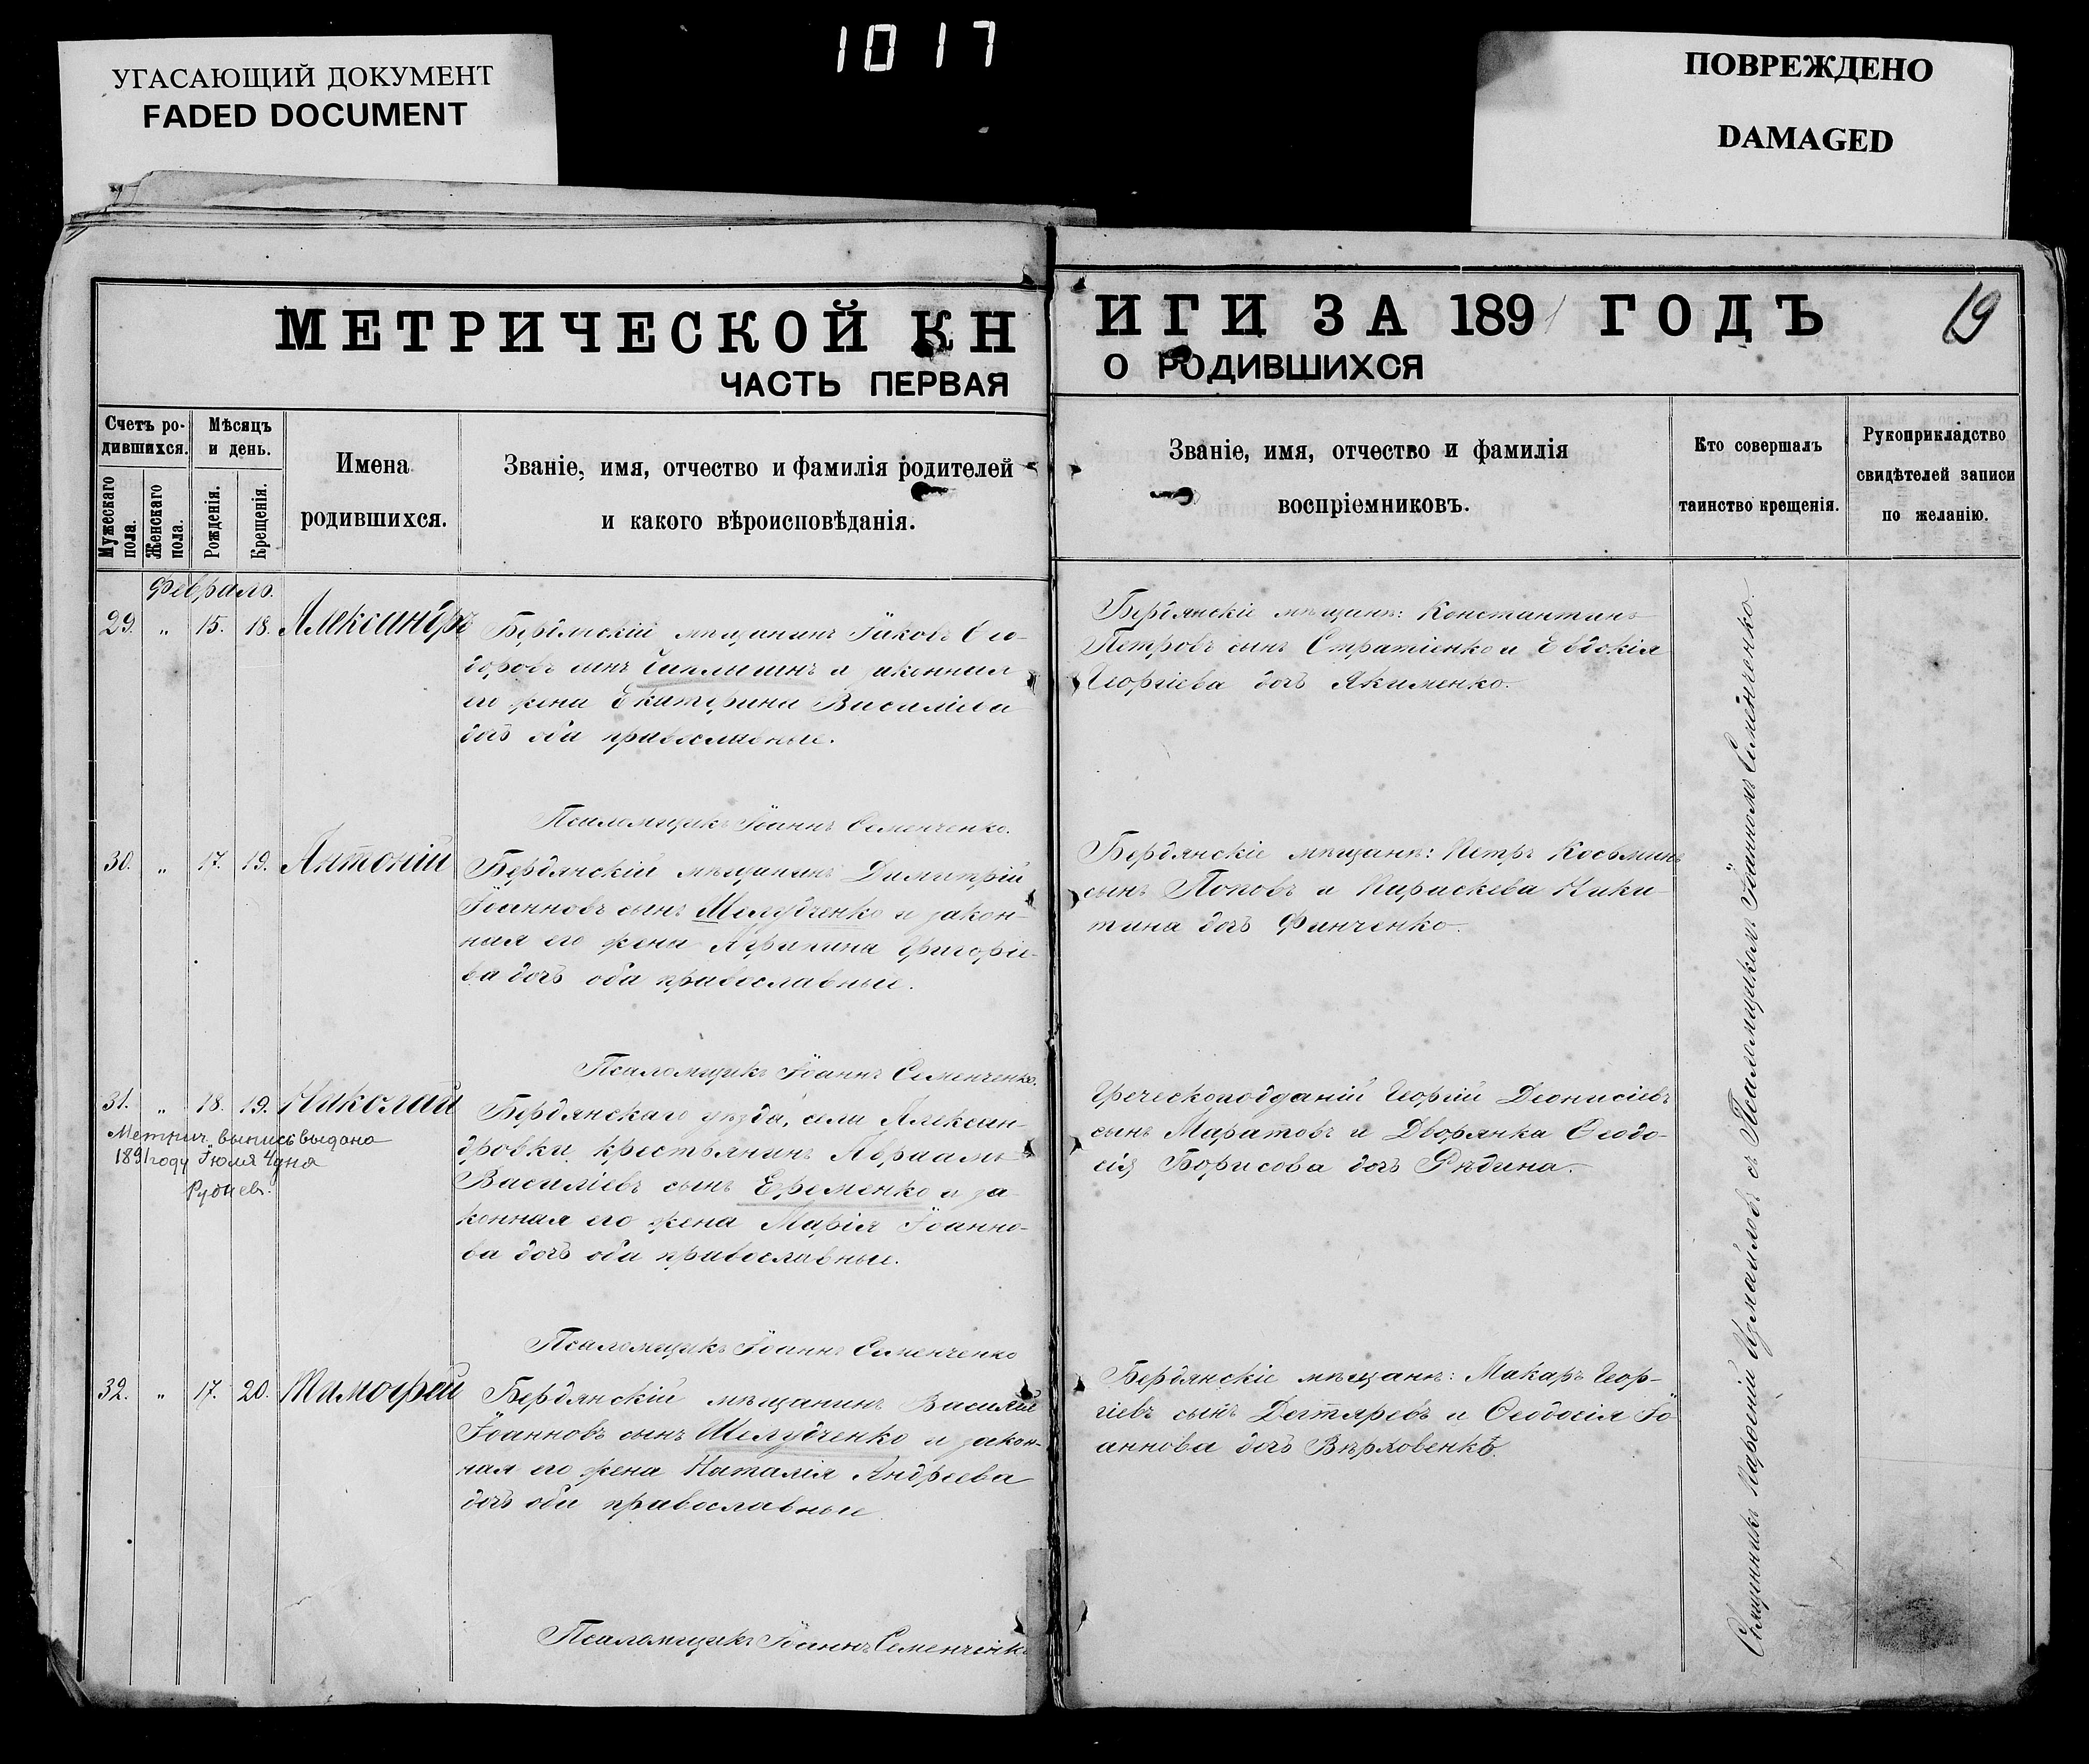 1017
УГАСАЮЩИЙ ДОКУМЕНТ
FADED DOCUMENT
ПОВРЕЖДЕНО
DAMAGED
МЕТРИЧЕСКОЙ КН
ЧАСТЬ ПЕРВАЯ
ИГИ ЗА 1891 ГОДЪ
О РОДИВШИХСЯ
19
Счетъ ро-
дившихся.
Мужескаго
пола.
Женскаго
пола.
Мѣсяцъ
и день.
Рожденія.
Крещенія.
Имена
родившихся.
Званіе, имя, отчество и фамилія родителей
и какого вѣроисповѣданія.
Званіе, имя, отчество и фамилія
воспріемниковъ.
Кто совершалъ
таинство крещенія.
Рукоприкладство
свидѣтелей записи
по желанію.
Февраль.
29. „ 15. 18. Александръ
Бердянскій мѣщанинъ Іаковъ Ѳео-
доровъ сынъ и законная
его жена Екатерина Василіева
дочь оба православные.
Псаломщикъ Іоаннъ Семенченко.
Бердянскіе мѣщане: Константинъ
Петровъ сынъ Стратіенко и Евдокія
Георгіева дочь Якименко.
30. „ 17. 19. Антоній
Бердянскій мѣщанинъ Димитрій
Іоанновъ сынъ Шелудченко и закон-
ная его жена Агрипина Григоріе-
ва дочь оба православные.
Псаломщикъ Іоаннъ Семенченко.
Бердянскіе мѣщане: Петръ Косьминъ
сынъ Поповъ и Параскева Ники-
тина дочь Финченко.
31. „ 18. 19. Николай
Метрич. выпись выдана
1891 году Іюля 4 дня
Бердянскаго уѣзда, села Алексан-
дровки, крестьянинъ Авраамъ
Василіевъ сынъ Еременко и за-
конная его жена Марія Іоанно-
ва дочь оба православные.
Псаломщикъ Іоаннъ Семенченко
Греческоподданій Георгій Діонисіевъ
сынъ Маратовъ и Дворянка Ѳеодо-
сія Борисова дочь Рѣдина.
32. „ 17. 20. Тимоѳей
Бердянскій мѣщанинъ Василій
Іоанновъ сынъ Шелудченко и закон-
ная его жена Наталія Андреева
дочь оба православные
Псаломщикъ Іоаннъ Семенченко
Бердянскіе мѣщане: Макаръ Геор-
гіевъ сынъ Дегтяревъ и Ѳеодосія Іо-
аннова дочь
Священникъ Парѳеній Измайловъ съ Псаломщикомъ Іоанномъ Семенченко.